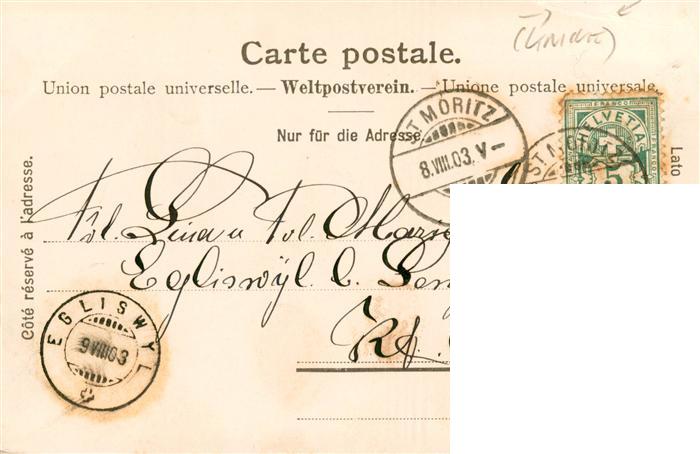 Carte postale.
Union postale universelle. — Weltpostverein. — Unione postale universale.
Nur für die Adresse.
Côté réservé à l'adresse.
Lato
ST MORITZ
8.VIII.03.V-
ST MORITZ
HELVETIA
FRANCO
5
Frl. Lina u Frl. Marie
Egliswyl. b. Len
Kt.
EGLISWYL
9 VIII 03